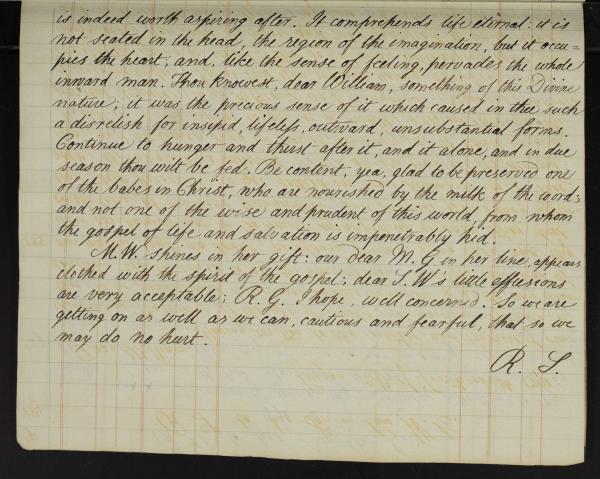 is indeed worth aspiring after. It comprehends life eternal: it is
not seated in the head, the region of the imagination, but it occu=
pies the heart, and, like the sense of feeling, pervades the whole
inward man. Thou knowest, dear William, something of this Divine
nature; it was the precious sense of it which caused in thee such
a disrelish for insipid, lifeless, outward, unsubstantial forms.
Continue to hunger and thirst after it, and it alone, and in due
season thou wilt be fed. Be content, yea, glad to be preserved one
of the babes in Christ, who are nourished by the milk of the word;
and not one of the wise and prudent of this world, from whom
the gospel of life and salvation is impenetrably hid.
M. W. shines in her gift: our dear M. G. in her line, appears
clothed with the spirit of the gospel; dear S. W's little effusions
are very acceptable; R. G. I hope, well concerned. So we are
getting on as well as we can, cautious and fearful, that so we
may do no hurt.
R. S.